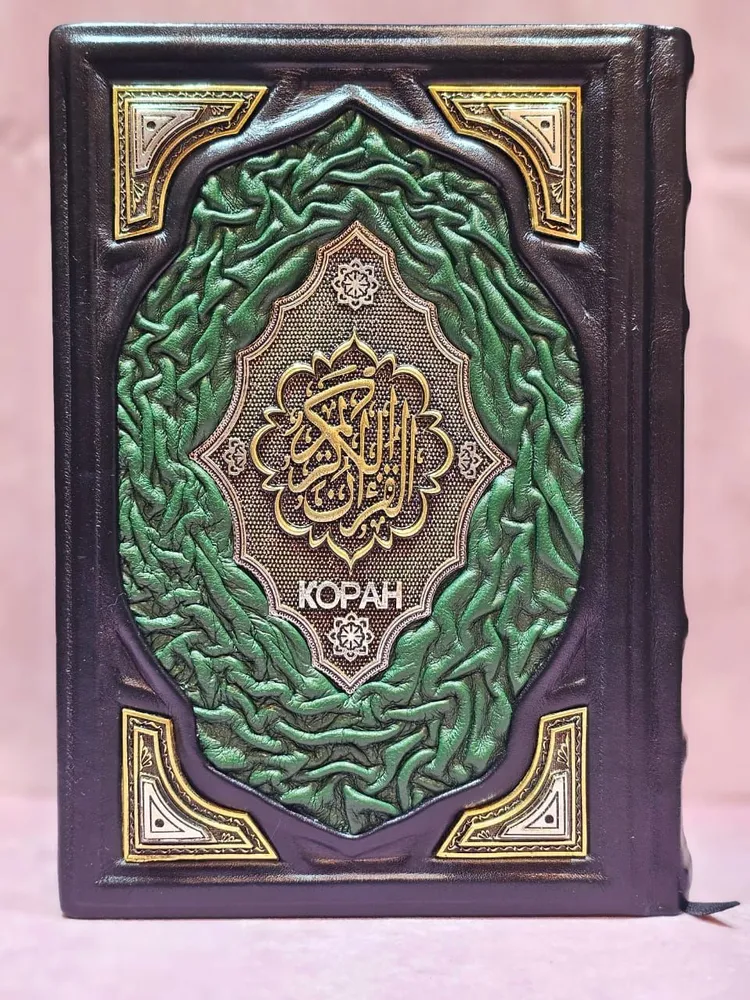 القرآن الكريم
КОРАН